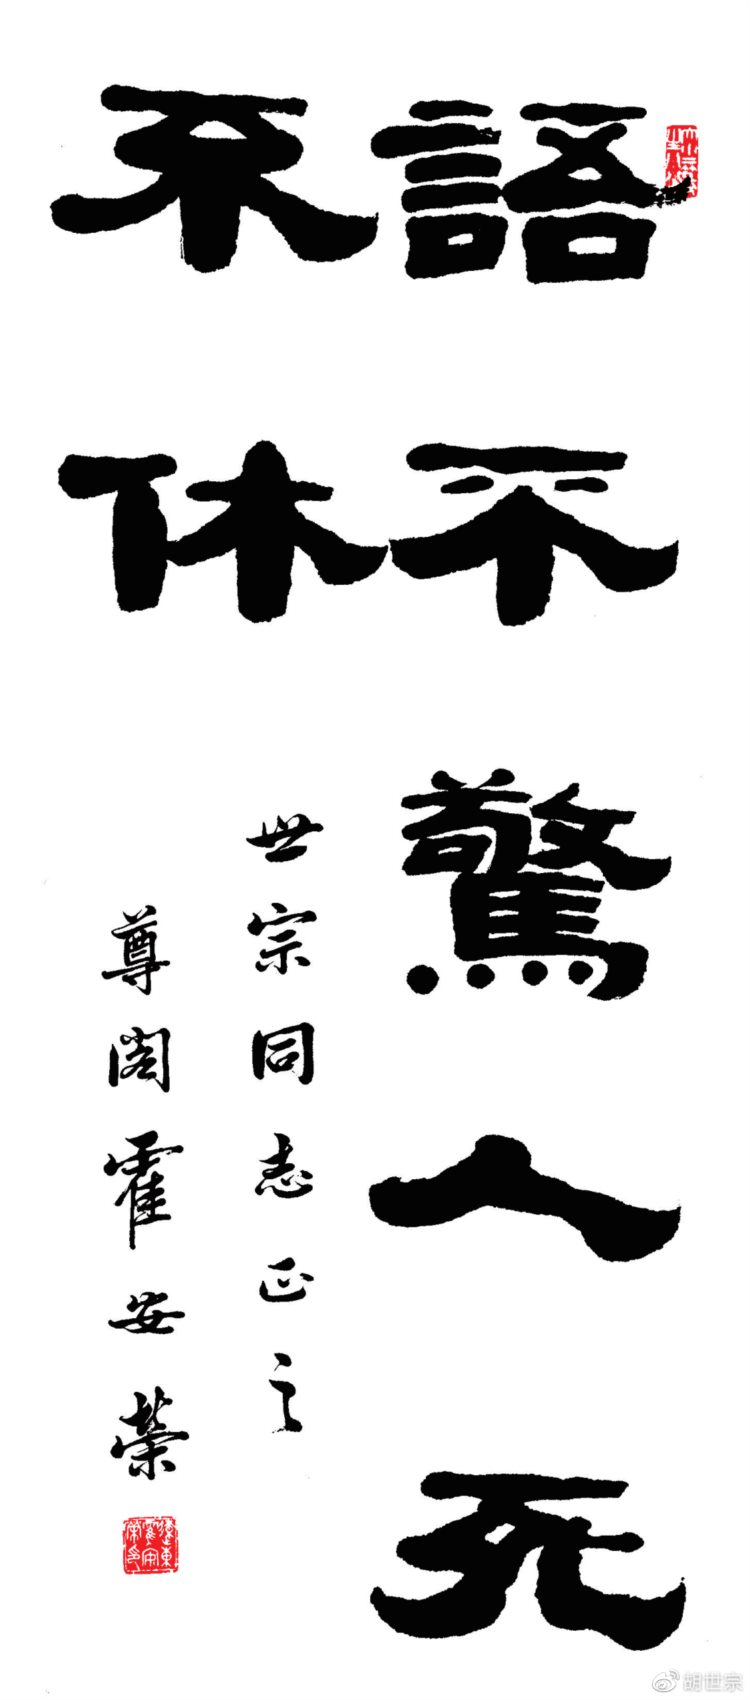 語不驚人死
不休
世宗同志正之
尊阁霍安荣
胡世宗